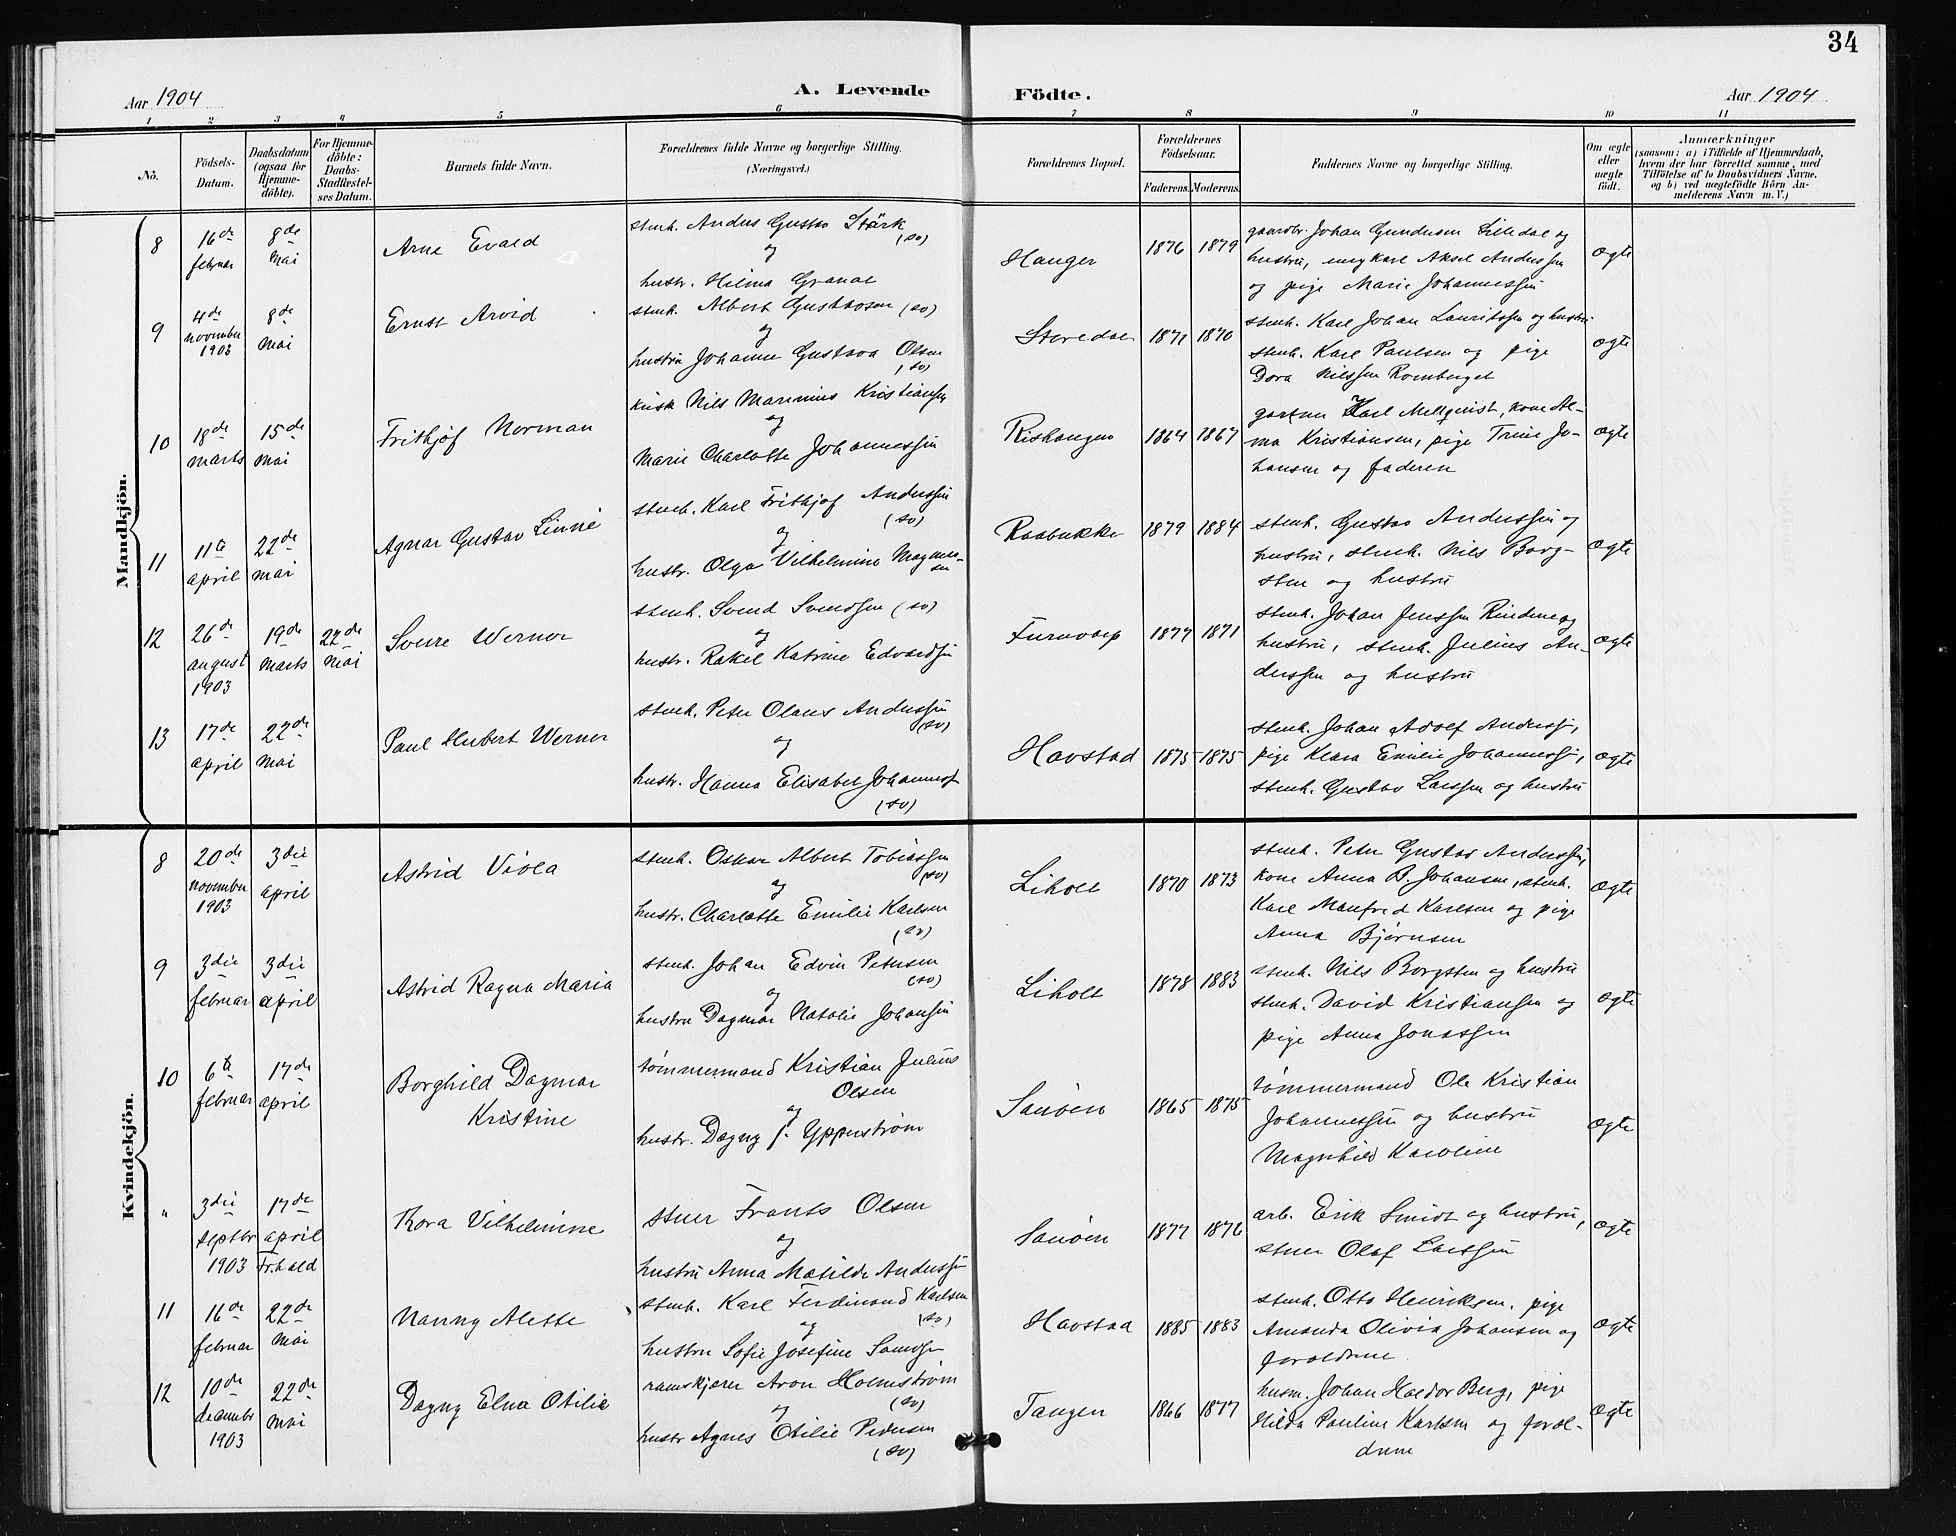 34
Aar 1904
A. Levende
Födte.
Aar 1904
1 2 3 4 5 6 7 8 9 10 11
No.
Födsels-
Datum.
Daabsdatum
(ogsaa for
Hjemme-
döbte).
For Hjemme-
döbte:
Daabs-
Stadfæstel-
ses Datum.
Barnets fulde Navn.
Forældrenes fulde Navne og borgerlige Stilling.
(Næringsvei.)
Forældrenes Bopæl.
Forældrenes
Födselsaar.
Faderens. Moderens.
Faddernes Navne og borgerlig Stilling.
Om ægte
eller
uægte
födt.
Anmærkninger
(saasom: a) i Tilfælde af Hjemmedaab,
hvem der har forrettet samme, med
Tilföielse af to Daabsvidners Navne,
og b) ved uægtefödte Börn An-
melderens Navn m. V.)
Mandkjön.
8
16de
februar
8de
mai
Arne Evald
stenh. Anders Gustav Stärk
(sv)
og
hustr. Hilma Granat
Hauger
1876 1879
gaardbr. Johan Gundersen Lilledal og
hustru, ungkarl Aksel Anderssen
og pige Marie Johannessen
ægte
9
4de
november
1903
8de
mai
Ernst Arvid
stenh. Albert Gustavsen (sv)
og
hustru Johanne Gustava Olsen
(sv)
Storedal
1871 1870
stenh. Karl Johan Lauritssen og hustru
stenh. Karl Paulsen og pige
Dora Nilssen Romberget
ægte
10
18de
marts
15de
mai
Frithjof Norman
kusk Nils Marinius Kristiansen
og
Marie Charlotte Johannessen
Rishaugen
1864 1867
gartner Karl Mellquist, kone Al-
ma Kristiansen, pige Trine Jo-
hansen og faderen
ægte
11
11te
april
22de
mai
Agnar Gustav Linné
stenh. Karl Frithjof Anderssen
(sv)
og
hustr. Olga Vilhelmine Magnus-
sen
Raabukke
1879 1884
stenh. Gustav Anderssen og
hustru, stenh. Nils Borg-
sten og hustru
ægte
12
26de
august
1903
19de
marts
22de
mai
Sverre Werner
stenh. Svend Svendsen (sv)
og
hustr. Rakel Katrine Edvardsen
1877 1871
stenh. Johan Jenssen Rindene og
hustru, stenh. Julius An-
derssen og hustru
ægte
13
17de
april
22de
mai
Paul Hubert Werner
stenh. Peter Olaus Anderssen
(sv)
og
hustr. Hanna Elisabet Johanness
(sv)
Havstad
1875 1875
stenh. Johan Adolf Anderss,
pige Klara Emilie Johanness,
stenh. Gustav Larssen og hustru
ægte
Kvindekjön.
8
20de
november
1903
3die
april
Astrid Viola
stenh. Oskar Albert Tobiassen
(sv)
og
hustr. Charlotte Emilie Karlsen
(sv)
Liholt
1870 1873
stenh. Peter Gustav Anderssen,
kone Anna B. Johansen, stenh.
Karl Manfred Karlsen og pige
Anna Bjørnsen
ægte
9
3die
februar
3die
april
Astrid Ragna Maria
stenh. Johan Edvin Petersen
(sv)
og
hustru Dagmar Natalie Johansen
Liholt
1878 1883
stenh. Nils Borgsten og hustru
stenh. David Kristiansen og
pige Anna Jonassen
ægte
10
6te
februar
17de
april
Borghild Dagmar
Kristine
tømmermand Kristian Julius
Olsen
og
hustr. Dagny J. Ypperstrøm
Sanøen
1865 1875
tømmermand Ole Kristian
Johannessen og hustru
Magnhild Karoline
ægte
"
3die
septbr
1903
17de
april
Fr.hald
Thora Vilhelmine
stuer Frants Olsen
og
hustru Anna Matilde Anderssen
Sanøen
1877 1876
arb. Erik Smidt og hustru,
stuer Olaf Larssen
ægte
11
16de
februar
22de
mai
Nanny Alette
stenh. Karl Ferdinand Karlsen
(sv)
og
hustru Sofie Josefine
Havstad
1885 1883
stenh. Otto Henriksen, pige
Amanda Olivia Johansen og
forældrene
ægte
12
10de
decembr
1903
22de
mai
Dagny Elna Otilie
ramskjører Aron Holmstrøm
(sv)
og
hustr Agnes Otilie Pedersen
(sv)
Tangen
1866 1877
husm. Johan Haldor Berg, pige
Hilda Pauline Karlsen og foræl-
drene
ægte